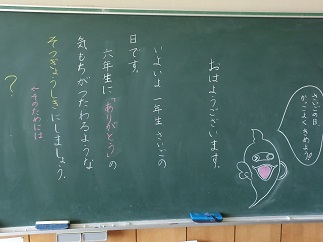 おはようございます。
いよいよ一年生さいごの
日です。
六年生に「ありがとう」の
気もちがつたわるような
そつぎょうしきにしましょう。
←そのためには
?
さいごの日
かっこよくきめよう!!